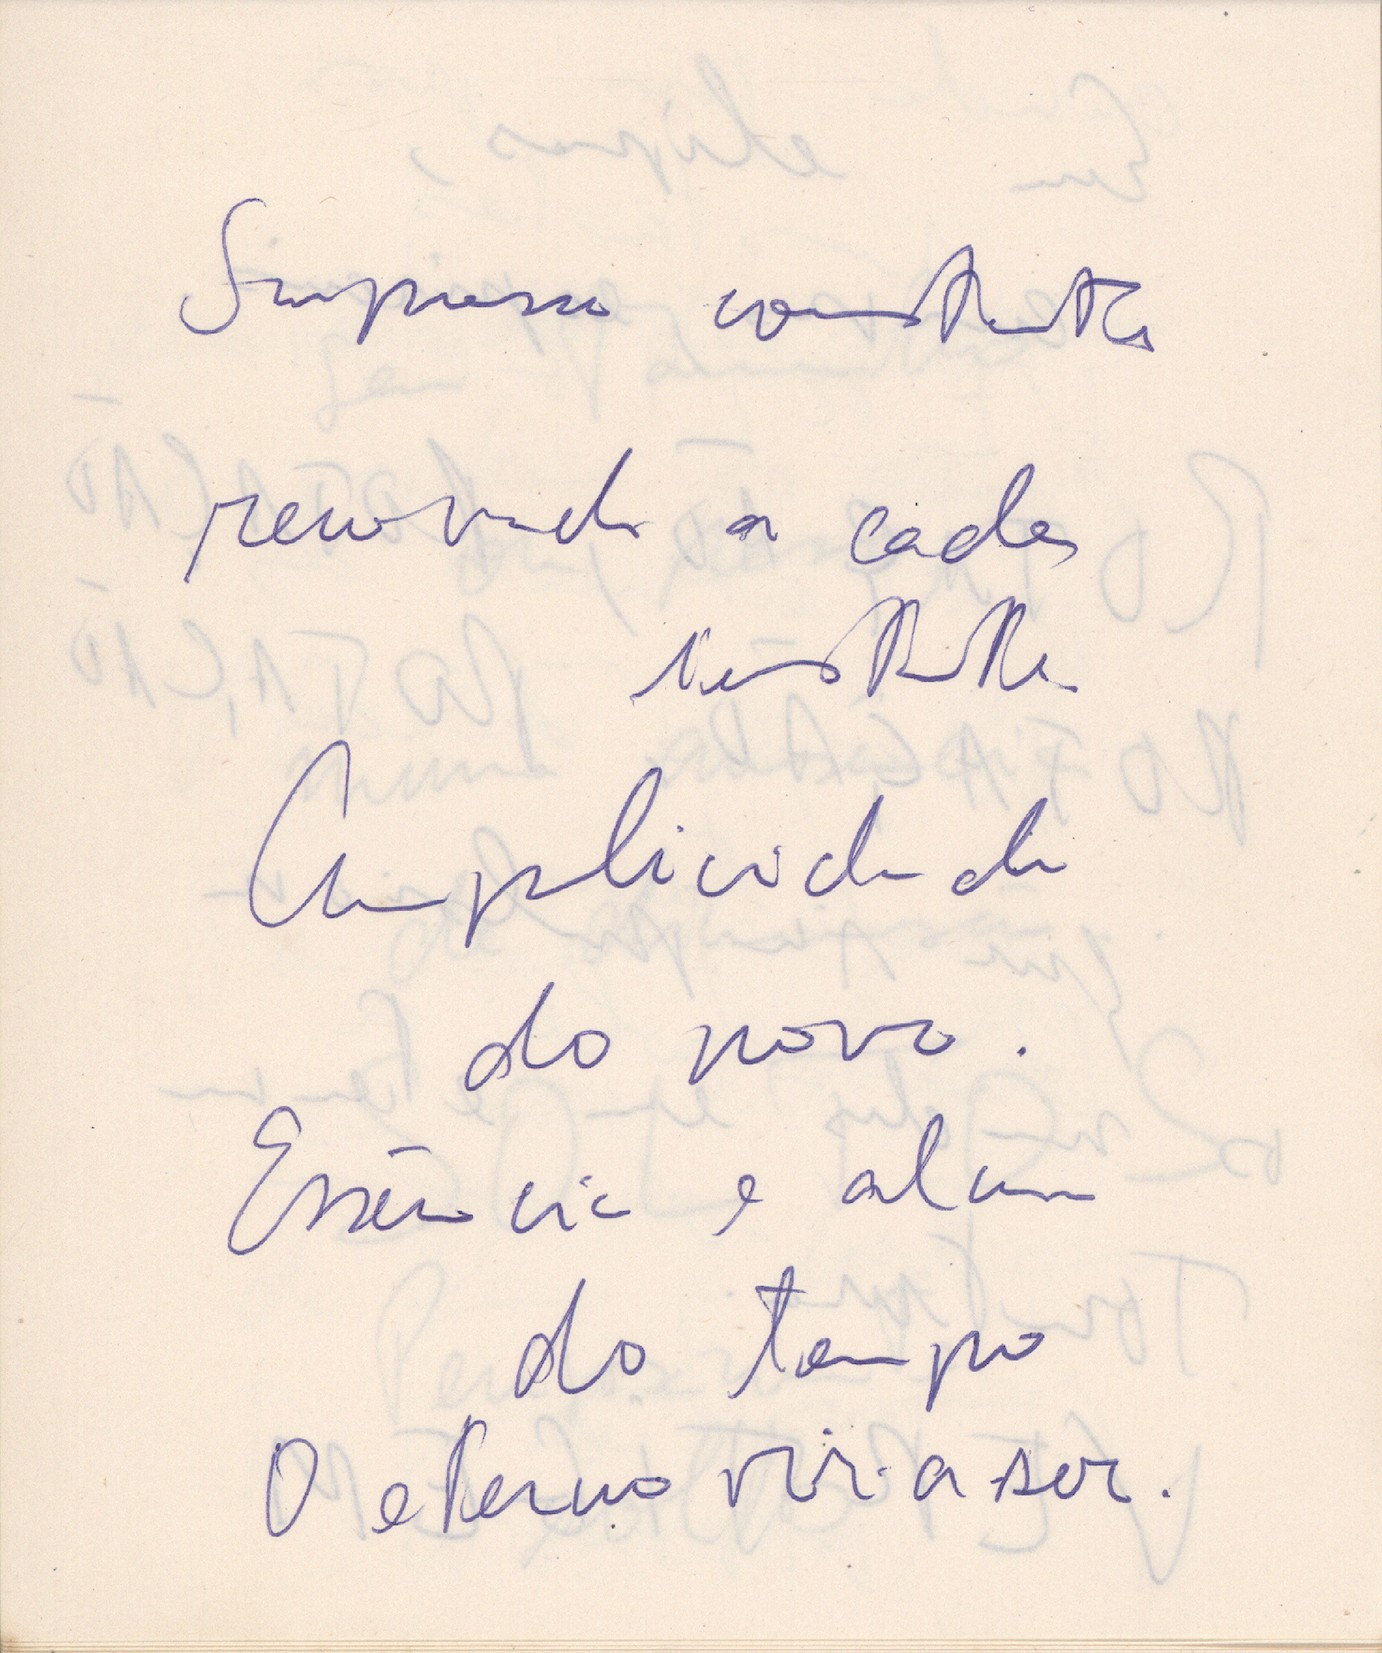 Surpresa constante
renovada a cada
instante
Cumplicidade
do novo.
Essência e alma
do tempo
O eterno vir-a-ser.